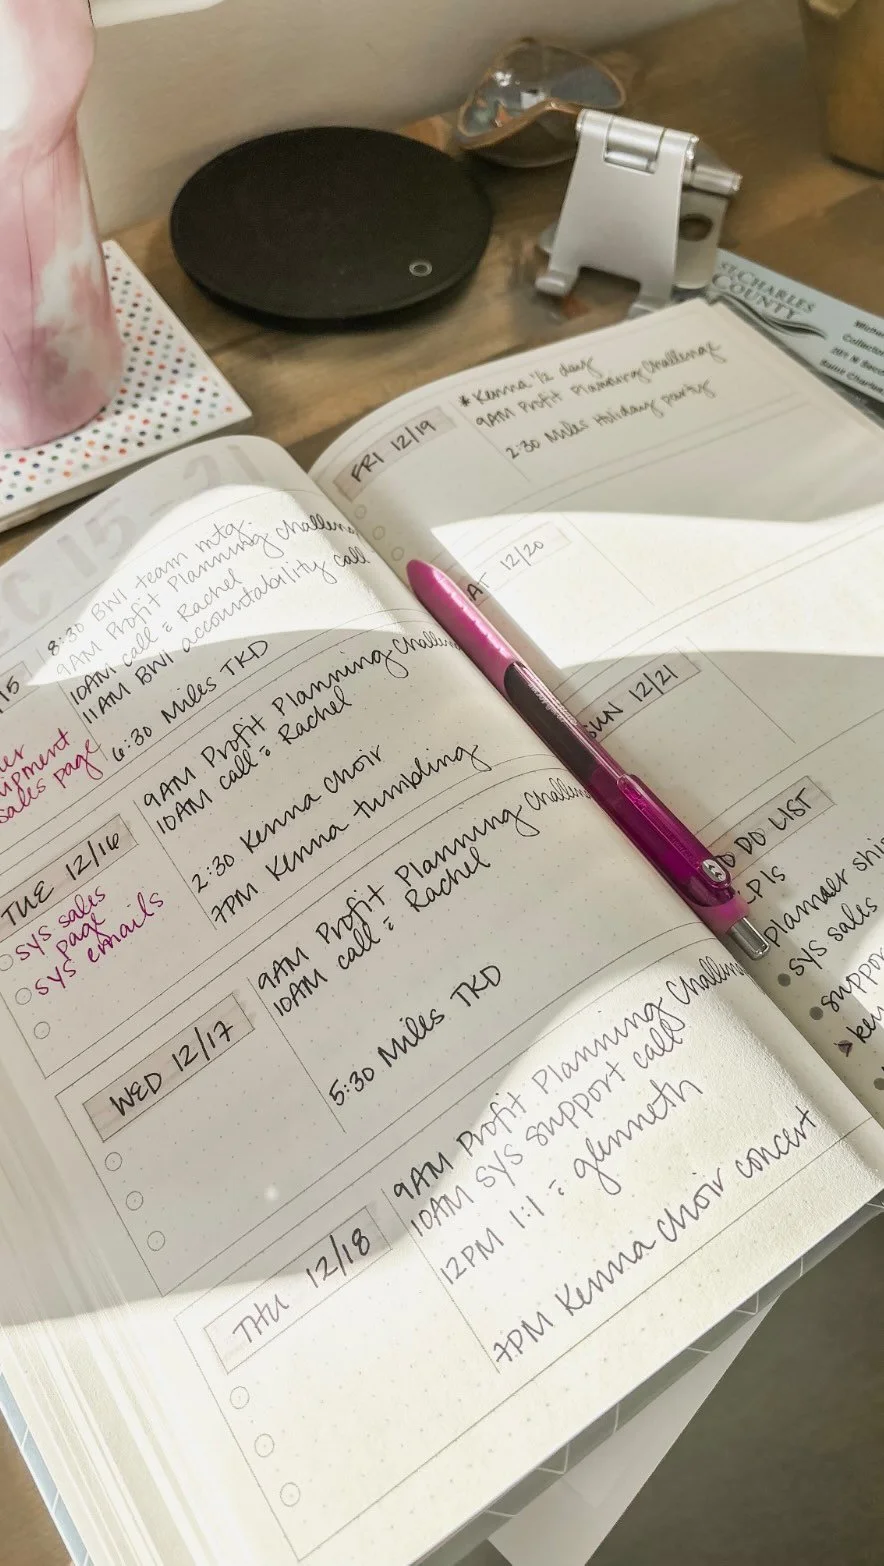 DEC 15-21
8:30 BWI team mtg.
9AM Profit Planning Challenge
10AM call c̄ Rachel
11AM BWI accountability call
6:30 Miles TKD
sales page
TUE 12/16
sys sales
page
sys emails
9AM Profit Planning Challenge
10AM call c̄ Rachel
2:30 Kenna choir
7PM Kenna tumbling
WED 12/17
9AM Profit Planning Challen
10AM call c̄ Rachel
5:30 Miles TKD
THU 12/18
9AM Profit Planning Challen
10AM sys support call
12PM 1:1 c̄ glenneth
7PM Kenna choir concert
FRI 12/19
* Kenna 1/2 day
9AM Profit Planning Challenge
2:30 Miles Holiday party
AT 12/20
SUN 12/21
O DO LIST
PIs
Planner shi
sys sales
suppor
ken
ST. CHARLES
COUNTY
Collector
201 N Seco
Saint Charles